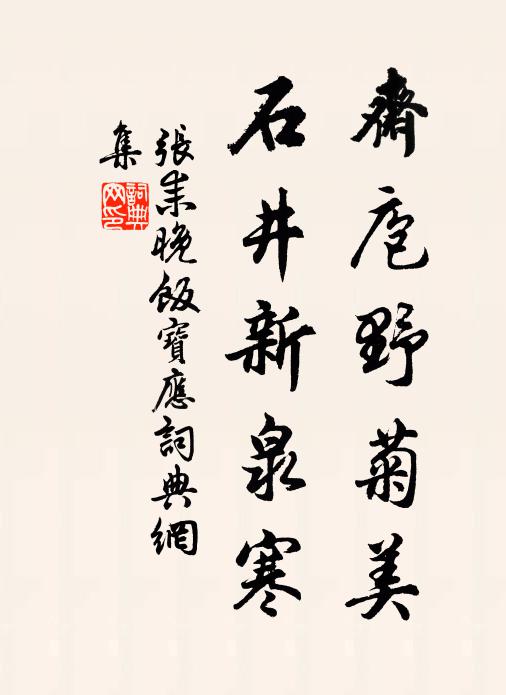 齋庖野菊美
石井新泉寒
張耒晚飯寶應詞典網
集
詞典
网印